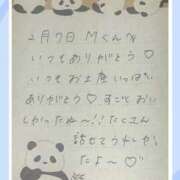 2月7日 Mくん
いつもありがとう♡
いつもお土産いっぱい
ありがとう♡すごくおい
しかったね〜!!たくさん
話せてうれしか
たよ〜♡